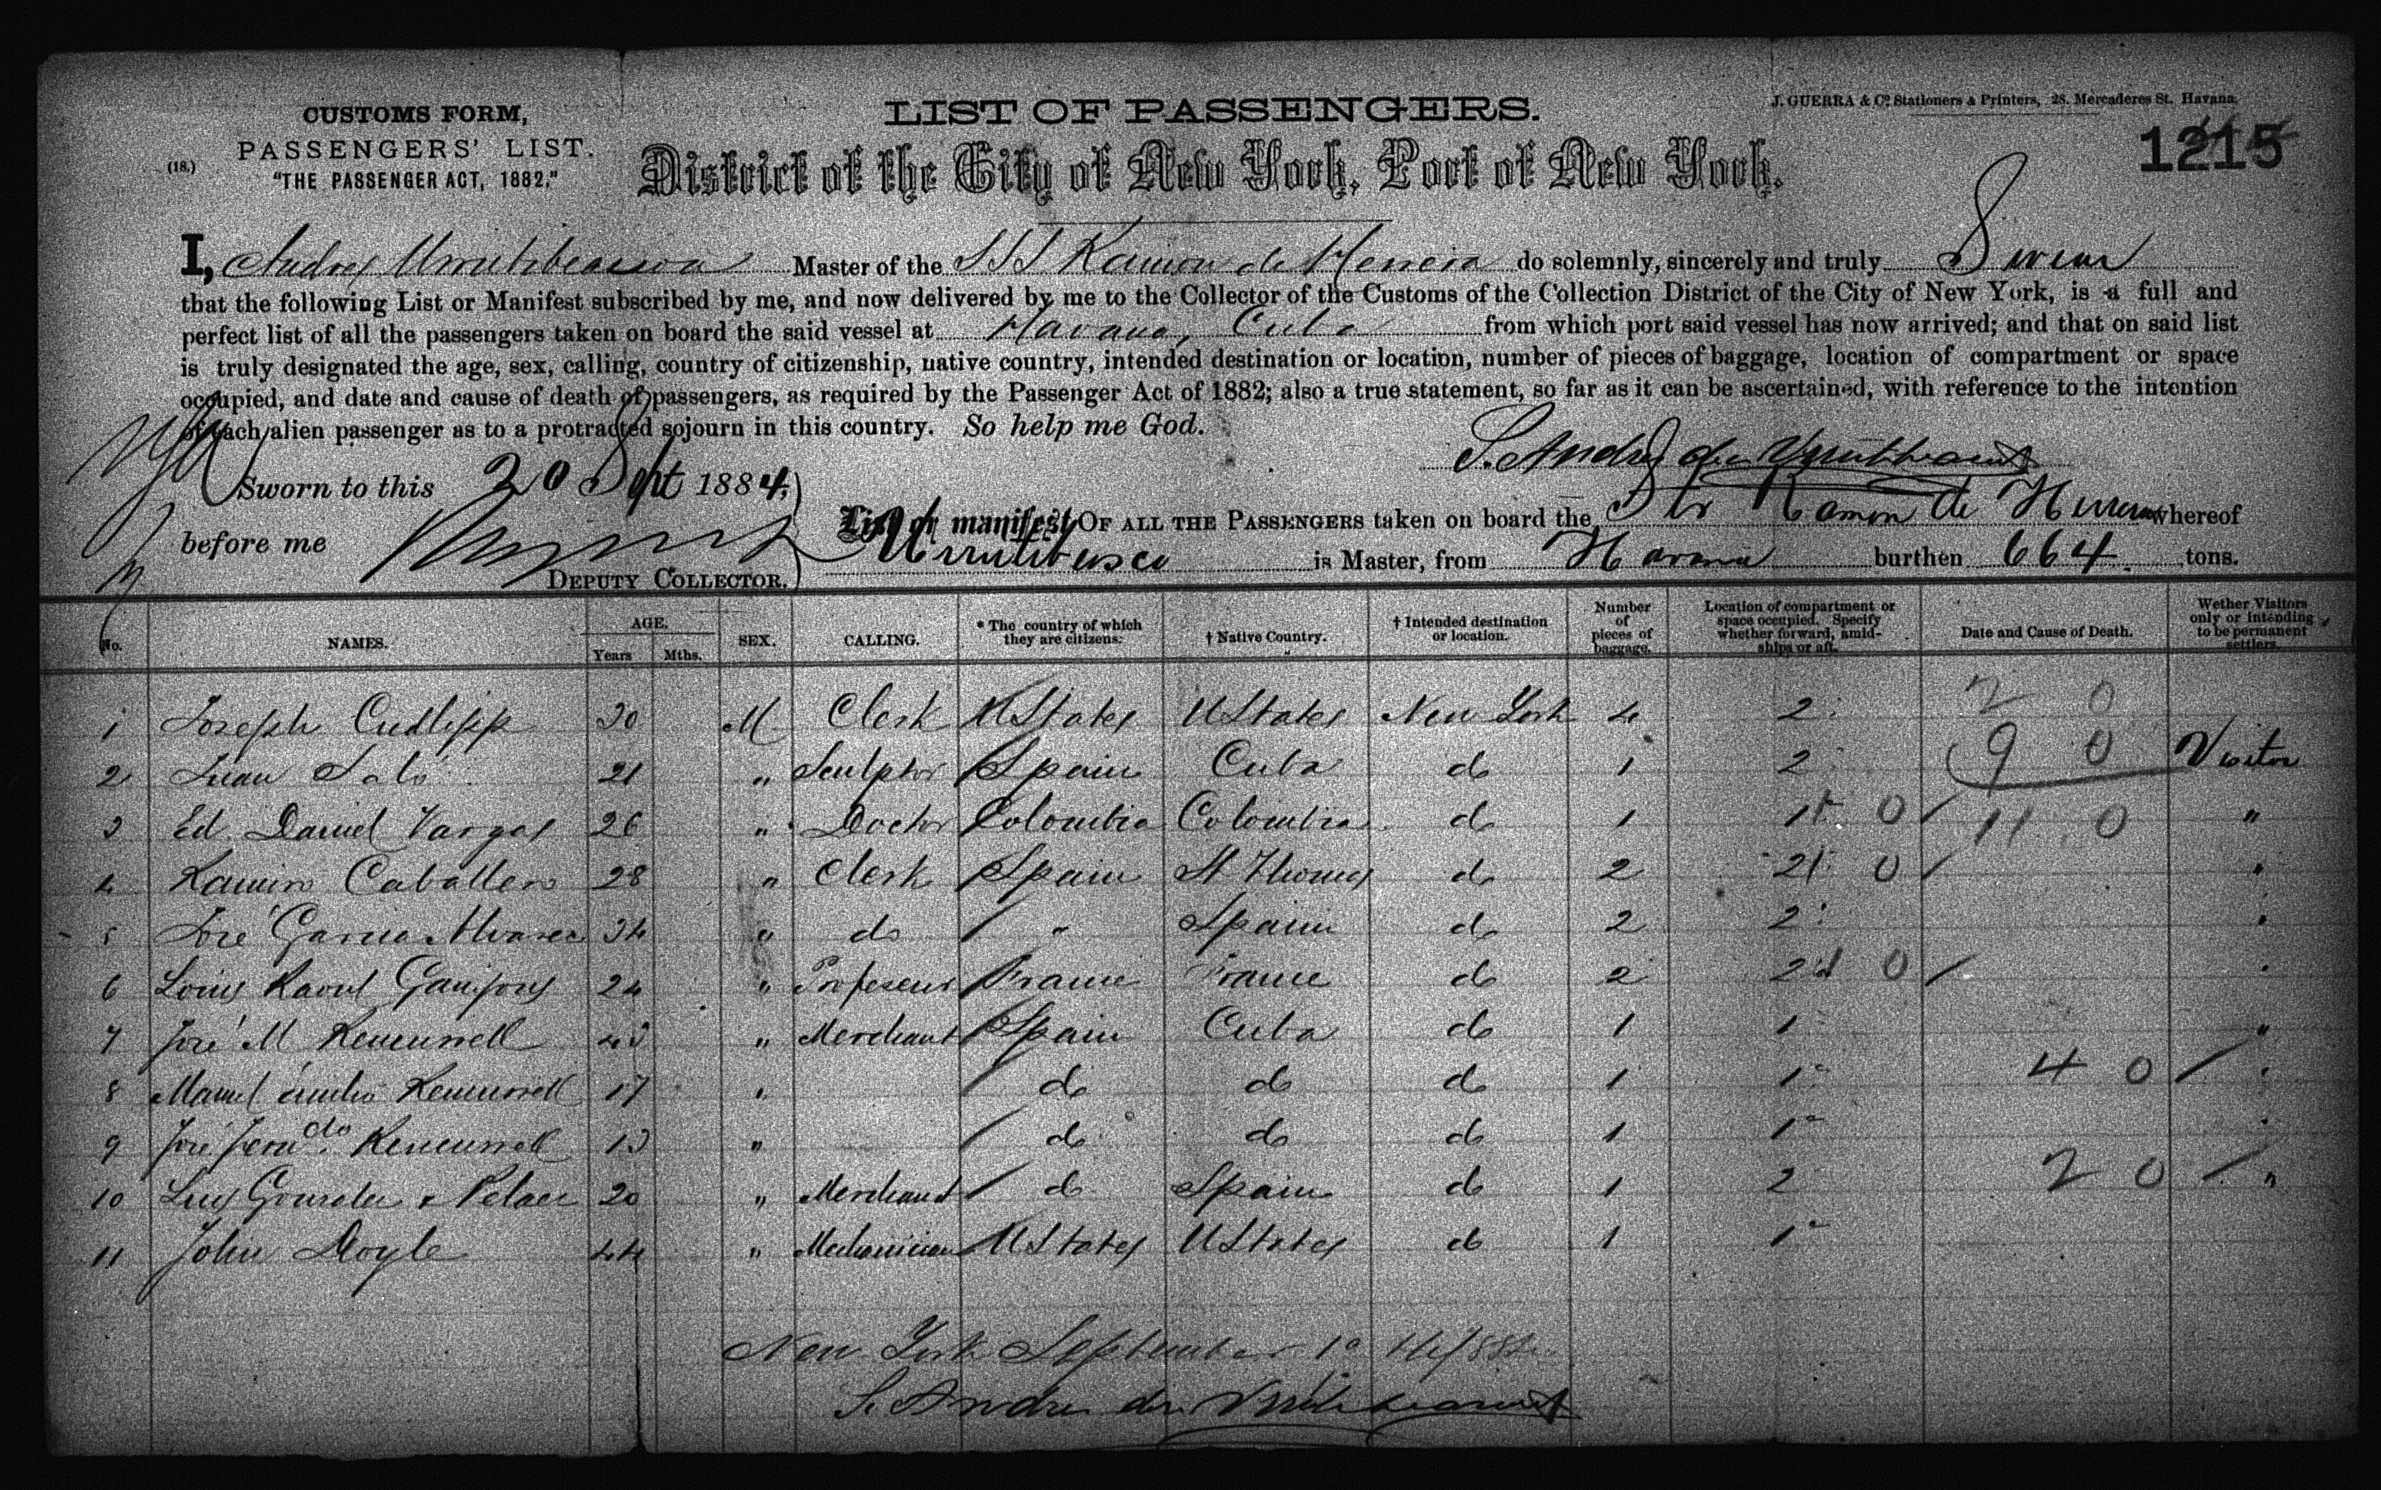 CUSTOMS FORM,
PASSENGERS' LIST.
(18.)
"THE PASSENGER ACT, 1882,"
LIST OF PASSENGERS.
J. GUERRA & Co. Stationers & Printers, 28. Mercaderes St. Havana.
1215
District of the City of New York, Port of New York.
I, Andres Urrutibeascoa Master of the SSS Ramon de Herrera do solemnly, sincerely and truly Swear
that the following List or Manifest subscribed by me, and now delivered by me to the Collector of the Customs of the Collection District of the City of New York, is a full and
perfect list of all the passengers taken on board the said vessel at Havana, Cuba from which port said vessel has now arrived; and that on said list
is truly designated the age, sex, calling, country of citizenship, native country, intended destination or location, number of pieces of baggage, location of compartment or space
occupied, and date and cause of death of passengers, as required by the Passenger Act of 1882; also a true statement, so far as it can be ascertained, with reference to the intention
of each alien passenger as to a protracted sojourn in this country. So help me God.
Sworn to this 20 Sept 1884,
before me
DEPUTY COLLECTOR.
List or manifest OF ALL THE PASSENGERS taken on board the Str Ramon de Herrera whereof
Urrutibeasco is Master, from Havana burthen 664 tons.
No. NAMES. AGE. Years Mths. SEX. CALLING. * The country of which they are citizens. † Native Country. † Intended destination or location. Number of pieces of baggage. Location of compartment or space occupied. Specify whether forward, amid-ships or aft. Date and Cause of Death. Wether Visitors only or intending to be permanent settlers.
1 Joseph Cudlipp 30 M Clerk UStates UStates New York 4 2 2 0
2 Juan Saló 21 " Sculptor Spain Cuba do 1 2 9 0 Visitor
3 Ed Daniel Vargas 26 " Doctor Colombia Colombia do 1 1st 0 11 0 "
4 Ramiro Caballero 28 " Clerk Spain St Thomas do 2 2 0 "
5 José Garcia Alvarez 34 " do " Spain do 2 2 "
6 Louis Raoul 24 " Profeseur France France do 2 2d 0 "
7 José M 43 " Merchant Spain Cuba do 1 1 "
8 Manuel Emilio 17 " do do do 1 1 4 0 "
9 José Fern do. 13 " do do do 1 1 "
10 Luis Gonzalez y Pelaez 20 " Merchant do Spain do 1 2 2 0 "
11 John Doyle 44 " Mechanician UStates UStates do 1 1
New York September